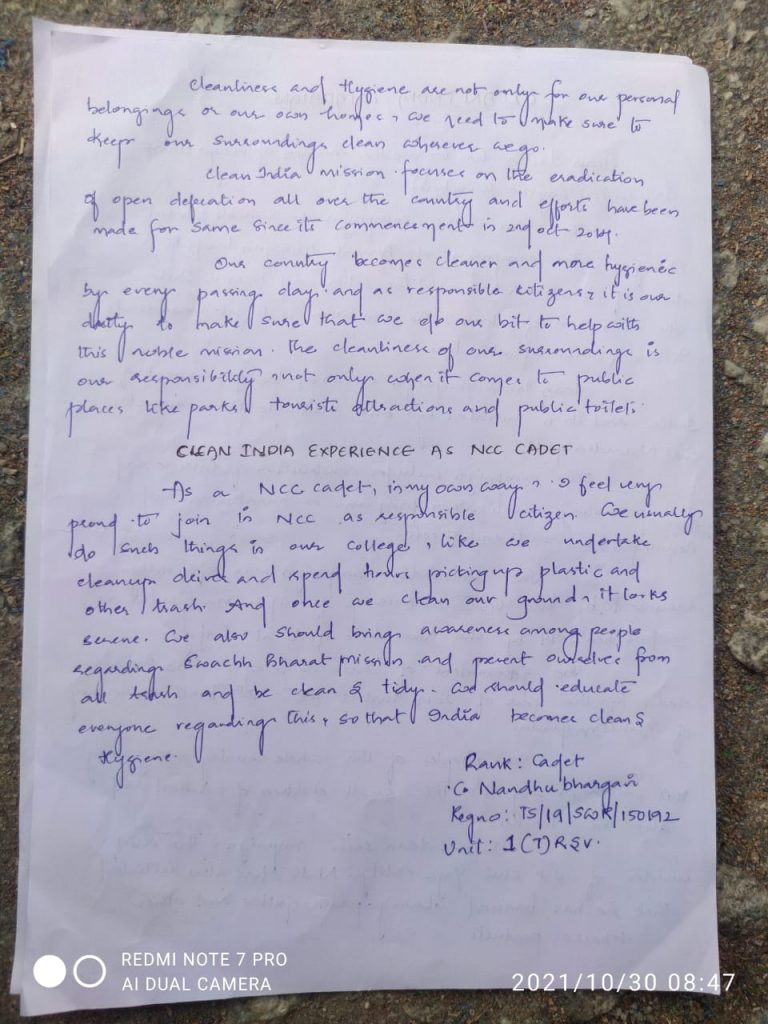 Cleanliness and Hygiene are not only for our personal
belongings or our own homes, we need to make sure to
keep our surroundings clean wherever we go.
Clean India mission focuses on the eradication
of open defecation all over the country and efforts have been
made for same since its commencement in 2nd oct 2014.
Our country becomes cleaner and more hygienic
by every passing day and as responsible citizens, it is our
duty to make sure that we do our bit to help with
this noble mission. The cleanliness of our surroundings is
our responsibility, not only when it comes to public
places like parks tourists attractions and public toilets.
CLEAN INDIA EXPERIENCE AS NCC CADET
As a NCC cadet, in my own way, I feel very
proud to join in NCC as responsible citizen. We usually
do such things in our college, like we undertake
cleanup drives and spend hours picking up plastic and
other trash. And once we clean our ground, it looks
serene. We also should bring awareness among people
regarding Swachh Bharat mission and prevent ourselves from
all trash and be clean & tidy. We should educate
everyone regarding this, so that India becomes clean &
Hygiene.
Rank: Cadet
Nandhu bhargavi
Regno: TS/19/SWR/150192
Unit: 1(T)R&V.
REDMI NOTE 7 PRO
AI DUAL CAMERA
2021/10/30 08:47